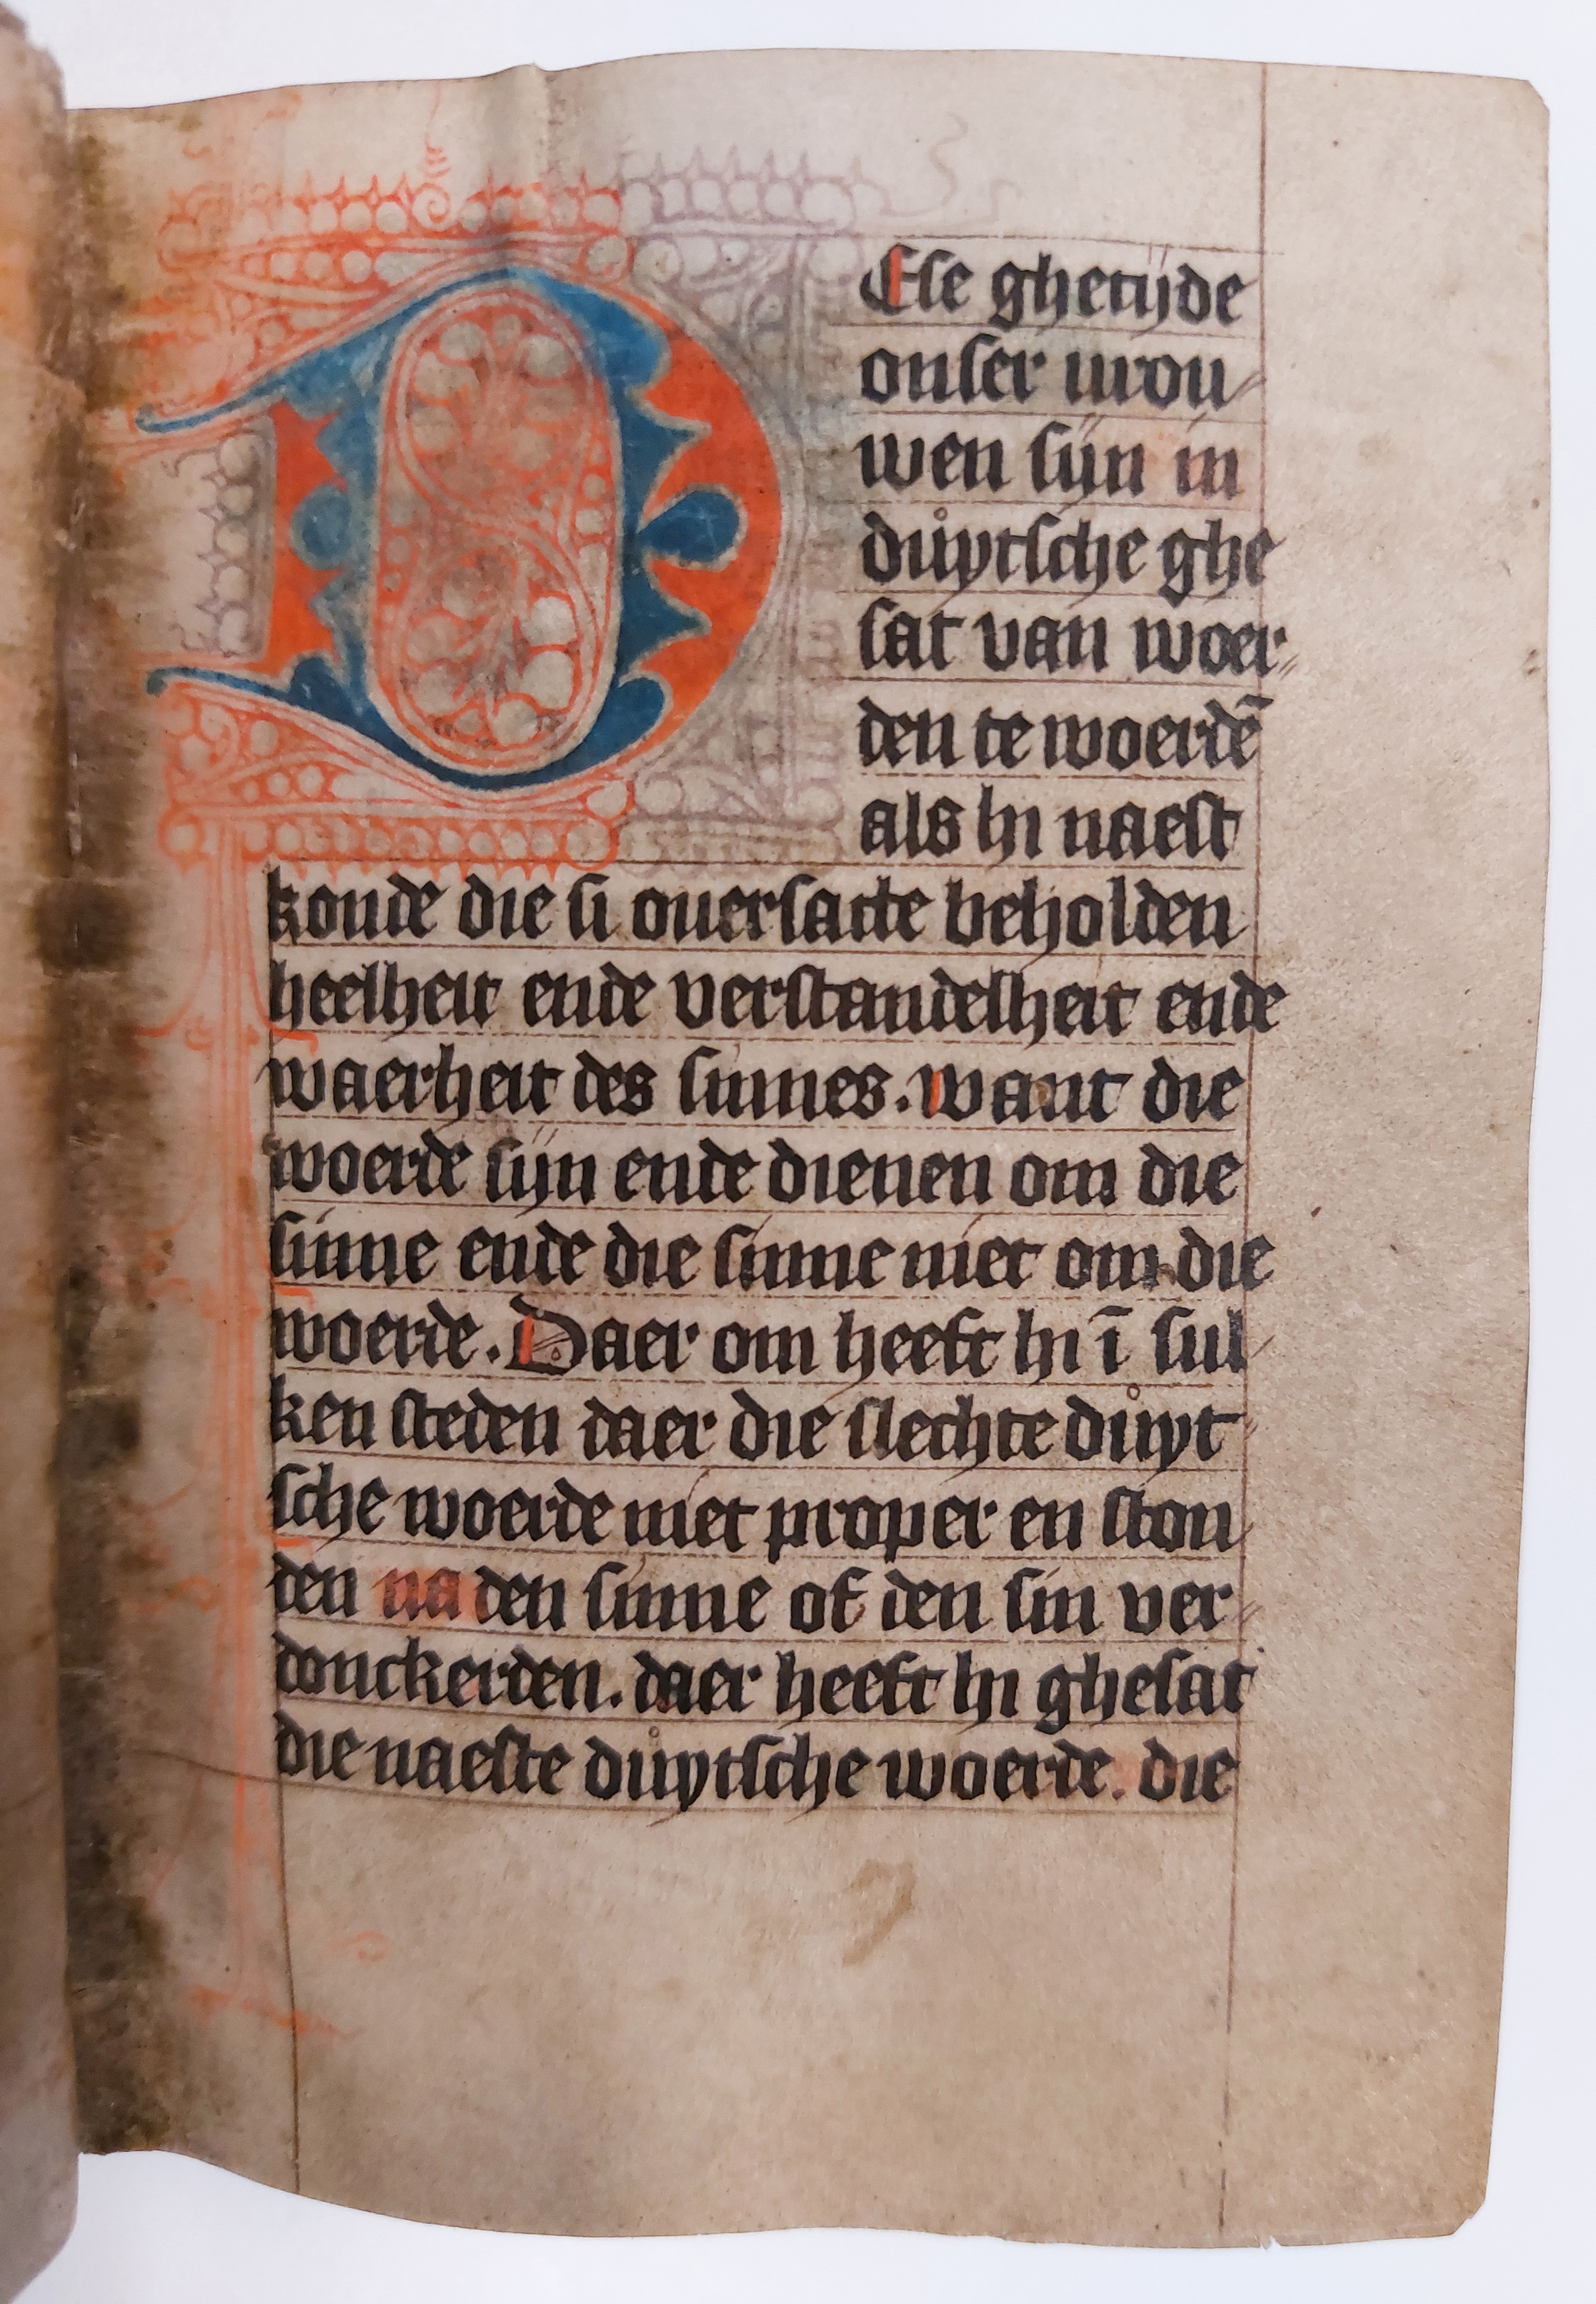 DEse ghetijde
onser urou
wen sijn in
duͦytsche ghe
sat van woer
den te woerdē
als hi naest
konde die si ouersatte beholden
heelheit ende verstandelheit ende
waerheit des sinnes. want die
woerde sijn ende dienen om die
sinne ende die sinne niet om die
woerde. Daer om heeft hi ī sul
ken steden daer die slechte duͦyt
sche woerde niet proper en ston
den na den sinne of den sin ver
donckerden. daer heeft hi ghesat
die naeste duͦytsche woerde. die